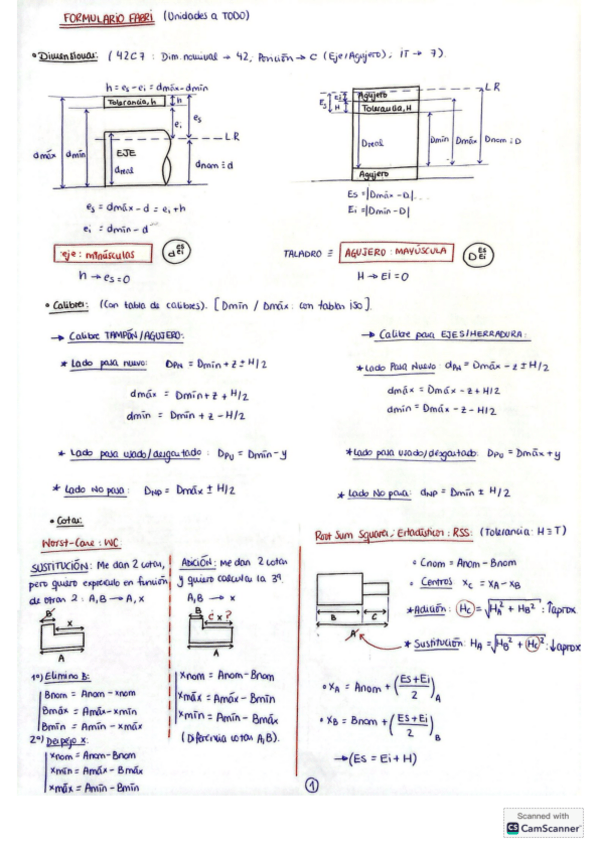 FORMULARIO FABRI (Unidades a TODO)
• Dimensional: (42C7 : Dim. nominal → 42, Posición → C (Eje/Agujero), IT → 7).
h = es - ei = dmáx - dmín
Tolerancia, h
h
es
ei
LR
EJE
dmáx
dmín
dreal
dnom ≡ d
es = dmáx - d = ei + h
ei = dmín - d
eje: minúsculas
d es ei
h → es = 0
LR
Agujero
Tolerancia, H
Es
Ei
H
Dreal
Dmín
Dmáx
Dnom ≡ D
Agujero
Es = |Dmáx - D|
Ei = |Dmín - D|
TALADRO ≡ AGUJERO: MAYÚSCULA
D Es Ei
H → Ei = 0
• Calibres: (Con tabla de calibres). [Dmín / Dmáx : con tablas ISO].
→ Calibre TAMPÓN/AGUJERO:
* Lado pasa nuevo: DPN = Dmín + z ± H/2
dmáx = Dmín + z + H/2
dmín = Dmín + z - H/2
* Lado pasa usado/desgastado : DPU = Dmín - y
* Lado No pasa : DNP = Dmáx ± H/2
→ Calibre para EJES/HERRADURA:
* Lado Pasa Nuevo dPN = Dmáx - z ± H/2
dmáx = Dmáx - z + H/2
dmín = Dmáx - z - H/2
* Lado pasa usado/desgastado: DPU = Dmáx + y
* Lado No pasa: dNP = Dmín ± H/2
• Cotas:
Worst-Case : WC
SUSTITUCIÓN: Me dan 2 cotas,
pero quiero expresarlo en función
de otras 2 : A, B → A, x
B
x
A
1º) Elimino B:
Bnom = Anom - xnom
Bmáx = Amáx - xmín
Bmín = Amín - xmáx
2º) Despejo x:
xnom = Anom - Bnom
xmín = Amáx - Bmáx
xmáx = Amín - Bmín
ADICIÓN: Me dan 2 cotas
y quiero calcular la 3ª.
A, B → x
B
¿x?
A
xnom = Anom - Bnom
xmáx = Amáx - Bmín
xmín = Amín - Bmáx
(Diferencia cotas A, B).
Root Sum Squares; Estadístico: RSS: (Tolerancia: H ≡ T)
B
C
A
◦ Cnom = Anom - Bnom
◦ Centros xC = xA - xB
* Adición: HC = √HA² + HB² : ↑aprox
* Sustitución: HA = √HB² + HC² : ↓aprox
◦ xA = Anom + (Es + Ei / 2)A
◦ xB = Bnom + (Es + Ei / 2)B
→ (Es = Ei + H)
1
Scanned with
CS CamScanner